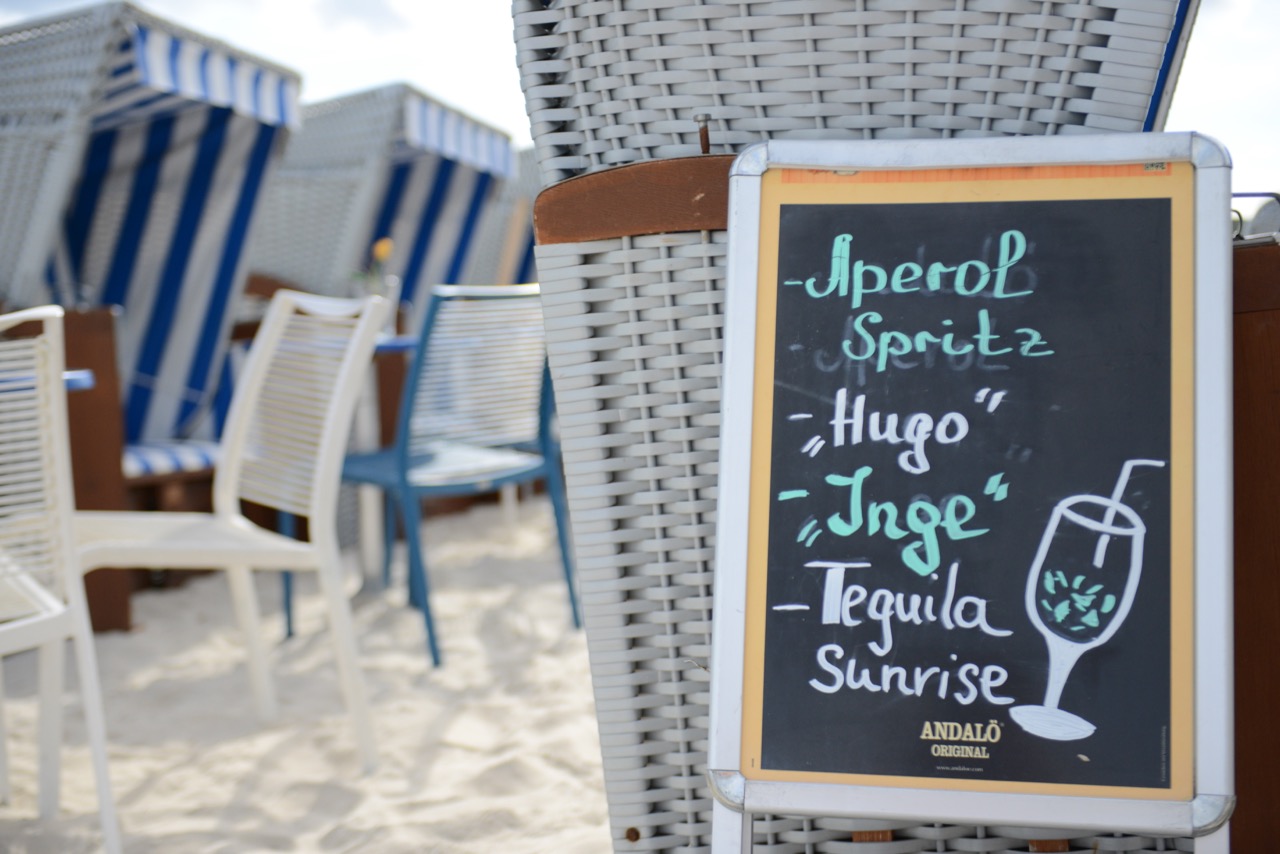 - Aperol
Spritz
- „Hugo“
- „Inge“
- Tequila
Sunrise
ANDALÖ
ORIGINAL
www.andaloe.com